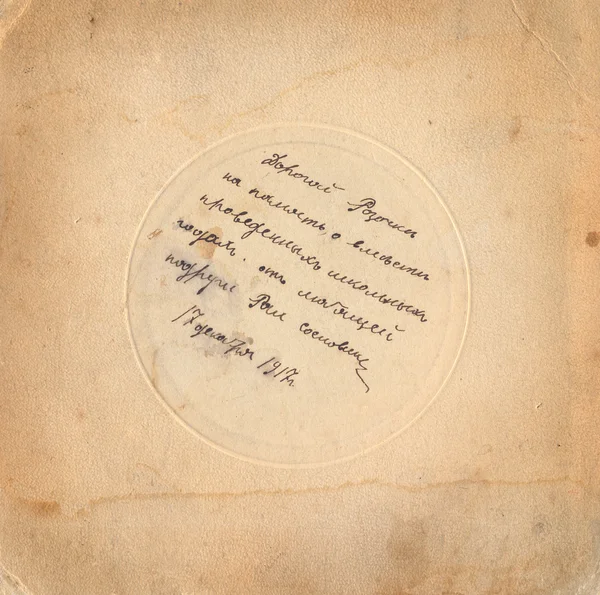 Дорогой Розочки
на помять, о вместе
проведенныхъ школьныхъ
годахъ. отъ любящей
подруги Раи
17 декабря 1917г.